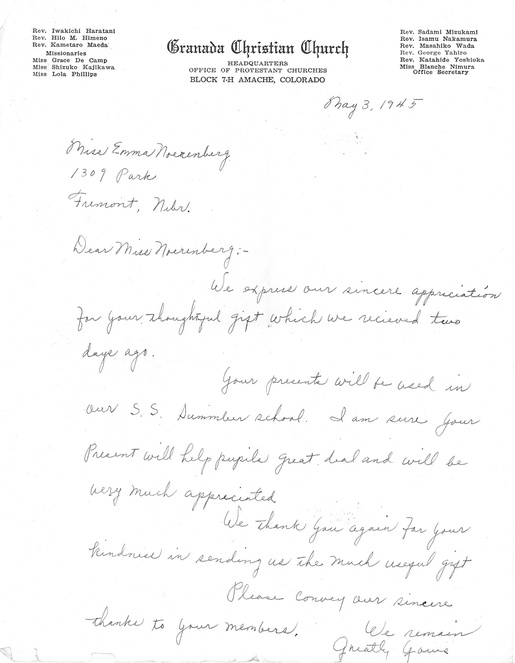 Rev. Iwakichi Haratani
Rev. Hilo M. Himeno
Rev. Kametaro Maeda
Missionaries
Miss Grace De Camp
Miss Shizuko Kajikawa
Miss Lola Phillips
Granada Christian Church
HEADQUARTERS
OFFICE OF PROTESTANT CHURCHES
BLOCK 7-H AMACHE, COLORADO
Rev. Sadami Mizukami
Rev. Isamu Nakamura
Rev. Masahiko Wada
Rev. George Yahiro
Rev. Katahide Yoshioka
Miss Blanche Nimura
Office Secretary
May 3, 1945
Miss Emma Noerenberg
1309 Park
Fremont, Nebr.
Dear Miss Noerenberg:-
We express our sincere appriciation
for your thoughtful gift which we recieved two
days ago.
Your presents will be used in
our S. S. Summber school. I am sure your
Present will help pupils great deal and will be
very much appreciated
We thank you again for your
kindness in sending us the much useful gift
Please convey our sincere
thanks to your members.
We remain
Greatly Yours